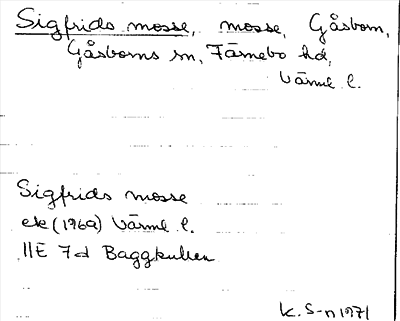 Sigfrids mosse, mosse, Gåsborn,
Gåsborns sn, Färnebo hd,
Värml l.
Sigfrids mosse
ek (1969) Värml l.
11E 7d Baggkullen
K. S-n 1971